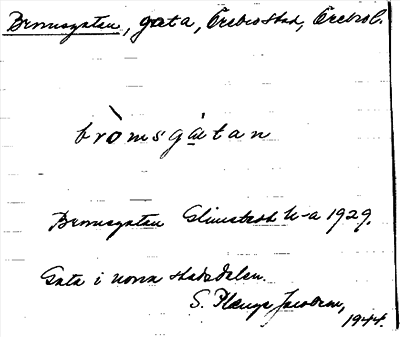 Bromsgatan, gata, Örebro stad, Örebro l.
bròmsgàtan
Bromsgatan Glimstedt h-a 1929.
Gata i norra stadsdelen.
S. Plenge Jacobsen,
1944.